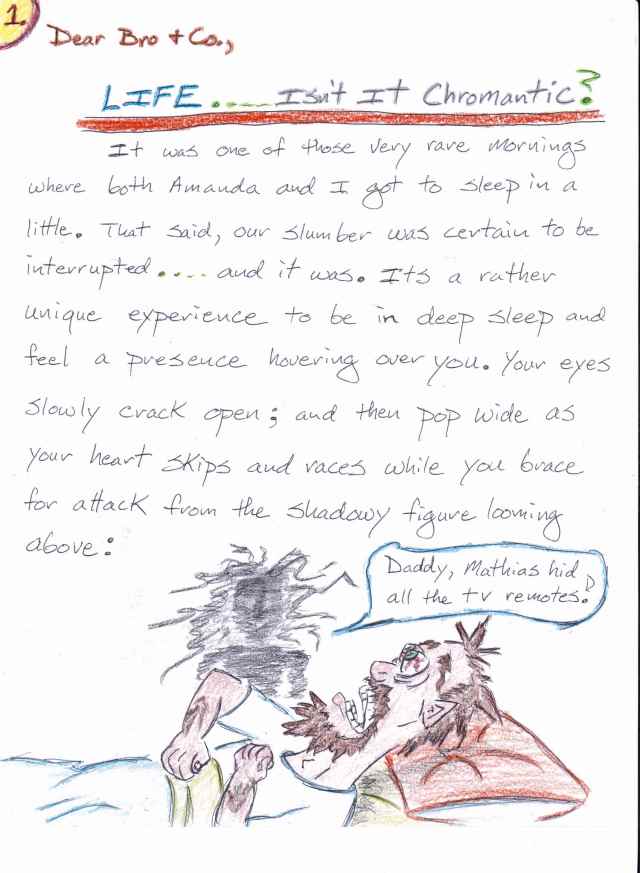 1.
Dear Bro + Co.,
LIFE..... Isn't It Chromantic?
It was one of those very rare mornings
where both Amanda and I got to sleep in a
little. That said, our slumber was certain to be
interrupted.... and it was. Its a rather
unique experience to be in deep sleep and
feel a presence hovering over you. Your eyes
slowly crack open; and then pop wide as
your heart skips and races while you brace
for attack from the shadowy figure looming
above:
Daddy, Mathias hid
all the tv remotes!